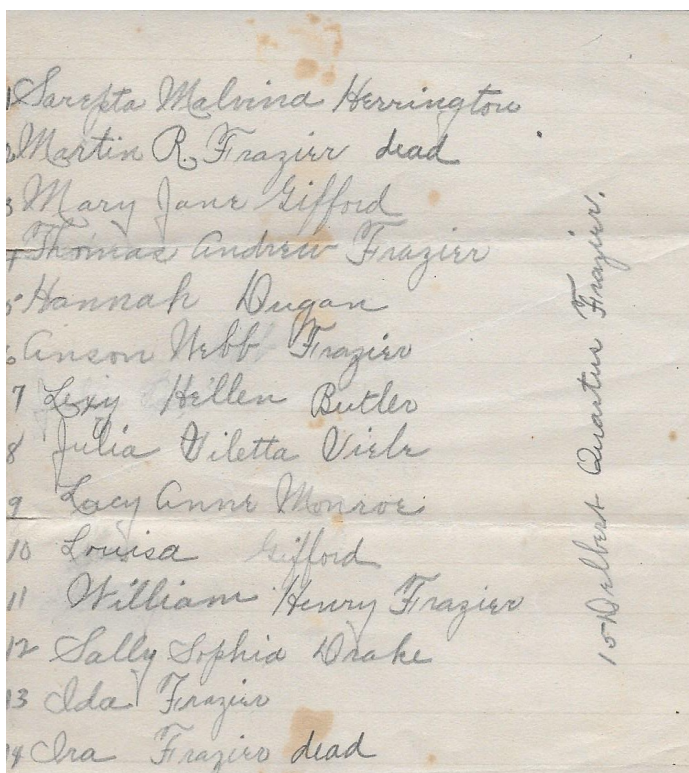 1 Sarepta Malvina Herrington
2 Martin R. Frazier dead
3 Mary Jane Gifford
4 Thomas Andrew Frazier
5 Hannah Dugan
6 Anson Webb Frazier
7 Lexy Hellen Butler
8 Julia Viletta Viele
9 Lacy Anne Monroe
10 Louisa Gifford
11 William Henry Frazier
12 Sally Sophia Drake
13 Ida Frazier
14 Ira Frazier dead
15 Delbert Quartus Frazier.